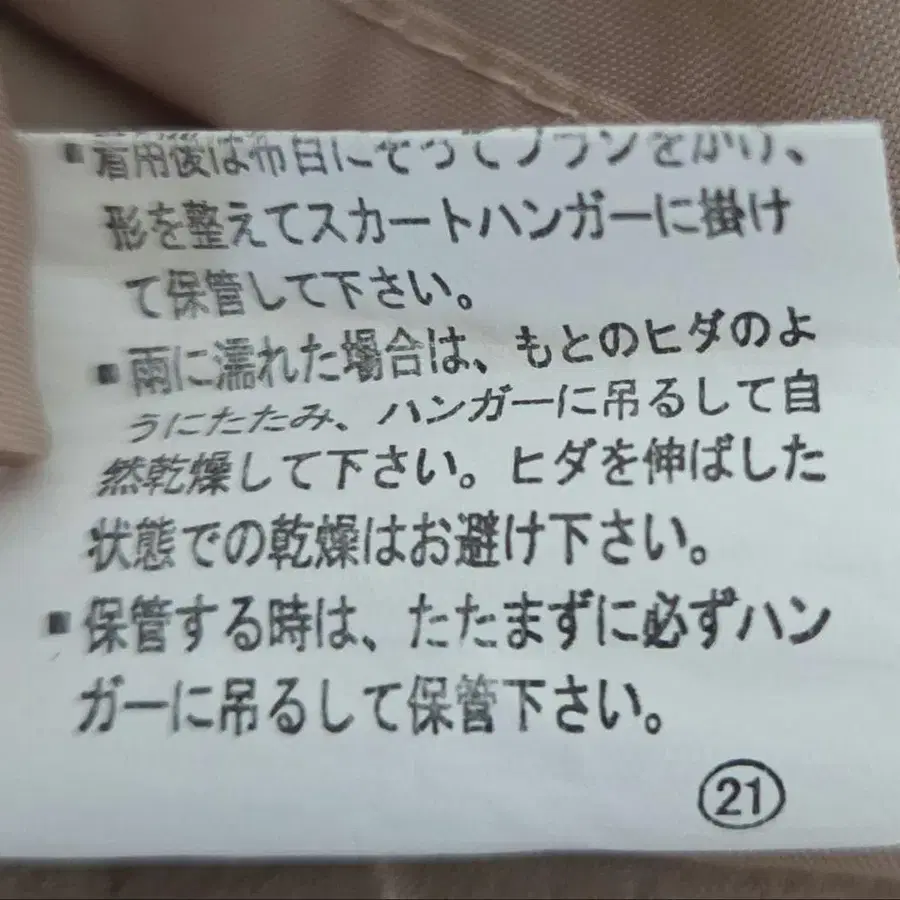 ■着用後は布目にそってブラシをかけ、
形を整えてスカートハンガーに掛け
て保管して下さい。
■雨に濡れた場合は、もとのヒダのよ
うにたたみ、ハンガーに吊るして自
然乾燥して下さい。ヒダを伸ばした
状態での乾燥はお避け下さい。
■保管する時は、たたまずに必ずハン
ガーに吊るして保管下さい。
21